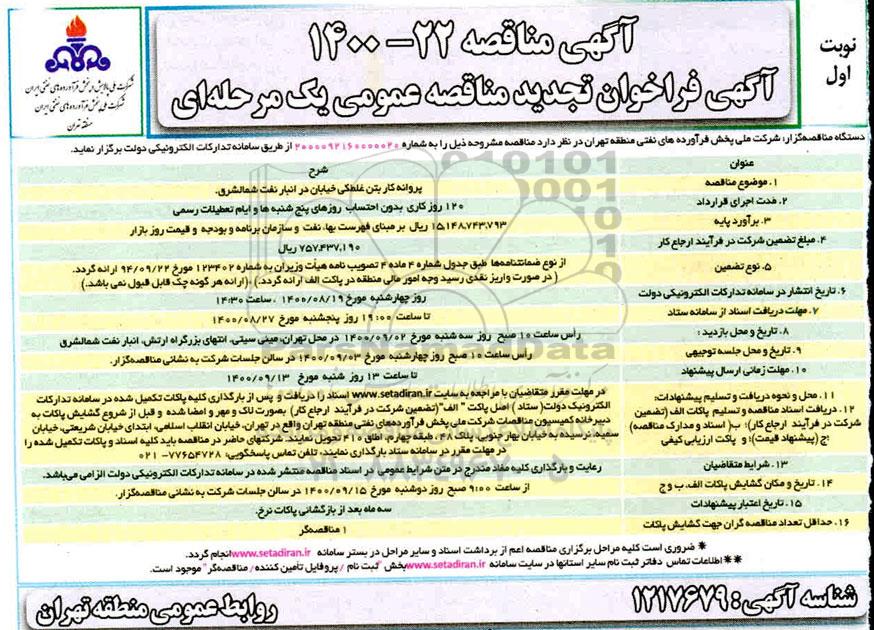 نوبت
اول
آگهی مناقصه ۲۲ - ۱۴۰۰
آگهی فراخوان تجدید مناقصه عمومی یک مرحله‌ای
شرکت ملی پالایش و پخش فرآورده‌های نفتی ایران
شرکت ملی پخش فرآورده‌های نفتی ایران
منطقه تهران
دستگاه مناقصه‌گزار: شرکت ملی پخش فرآورده های نفتی منطقه تهران در نظر دارد مناقصه مشروحه ذیل را به شماره ۲۰۰۰۰۹۲۱۶۰۰۰۰۰۲۰ از طریق سامانه تدارکات الکترونیکی دولت برگزار نماید.
عنوان شرح
۱. موضوع مناقصه پروانه کار بتن غلطکی خیابان در انبار نفت شمالشرق.
۲. مدت اجرای قرارداد ۱۲۰ روز کاری بدون احتساب روزهای پنج شنبه ها و ایام تعطیلات رسمی
۳. برآورد پایه ۱۵,۱۴۸,۷۴۳,۷۹۳ ریال بر مبنای فهرست بهاء نفت و سازمان برنامه و بودجه و قیمت روز بازار
۴. مبلغ تضمین شرکت در فرآیند ارجاع کار ۷۵۷,۴۳۷,۱۹۰ ریال
۵. نوع تضمین از نوع ضمانتنامه‌ها طبق جدول شماره ۴ ماده ۴ تصویب نامه هیأت وزیران به شماره ۱۲۳۴۰۲ مورخ ۹۴/۰۹/۲۲ ارائه گردد.
( در صورت واریز نقدی رسید وجه امور مالی منطقه در پاکت الف ارائه گردد.) ،(ارائه هر گونه چک قابل قبول نمی باشد.)
۶. تاریخ انتشار در سامانه تدارکات الکترونیکی دولت روز چهارشنبه مورخ ۱۴۰۰/۰۸/۱۹ ، ساعت ۱۴:۳۰
۷. مهلت دریافت اسناد از سامانه ستاد تا ساعت ۱۹:۰۰ روز پنجشنبه مورخ ۱۴۰۰/۰۸/۲۷
۸. تاریخ و محل بازدید : رأس ساعت ۱۰ صبح روز سه شنبه مورخ ۱۴۰۰/۰۹/۰۲ در محل تهران، مینی سیتی، انتهای بزرگراه ارتش، انبار نفت شمالشرق
۹. تاریخ و محل جلسه توجیهی رأس ساعت ۱۰ صبح روز چهارشنبه مورخ ۱۴۰۰/۰۹/۰۳ در سالن جلسات شرکت به نشانی مناقصه‌گزار.
۱۰. مهلت زمانی ارسال پیشنهاد تا ساعت ۱۳ روز شنبه مورخ ۱۴۰۰/۰۹/۱۳
۱۱. محل و نحوه دریافت و تسلیم پیشنهادات:
۱۲. دریافت اسناد مناقصه و تسلیم پاکات الف (تضمین
شرکت در فرآیند ارجاع کار)؛ ب( اسناد و مدارک مناقصه)
؛ج (پیشنهاد قیمت)؛ و پاکت ارزیابی کیفی
در مهلت مقرر متقاضیان با مراجعه به سایت www.setadiran.ir اسناد را دریافت و پس از بارگذاری کلیه پاکات تکمیل شده در سامانه تدارکات
الکترونیک دولت( ستاد ) اصل پاکت " الف"(تضمین شرکت در فرآیند ارجاع کار) بصورت لاک و مهر و امضا شده و قبل از شروع گشایش پاکات به
دبیرخانه کمیسیون مناقصات شرکت ملی پخش فرآورده‌های نفتی منطقه تهران واقع در تهران، خیابان انقلاب اسلامی، ابتدای خیابان شریعتی، خیابان
سمیه، نرسیده به خیابان بهار جنوبی، پلاک ۴۸، طبقه چهارم، اطاق ۴۱۰ تحویل نمایند. شرکتهای حاضر در مناقصه باید کلیه اسناد و پاکات تکمیل شده را
در مهلت مقرر در سامانه ستاد بارگذاری نمایند. تلفن تماس پاسخگویی: ۷۷۶۵۴۷۲۸- ۰۲۱
۱۳. شرایط متقاضیان رعایت و بارگذاری کلیه مفاد مندرج در متن شرایط عمومی در اسناد مناقصه منتشر شده در سامانه تدارکات الکترونیکی دولت الزامی می‌باشد.
۱۴. تاریخ و مکان گشایش پاکات الف، ب و ج از ساعت ۹:۰۰ صبح روز دوشنبه مورخ ۱۴۰۰/۰۹/۱۵ در سالن جلسات شرکت به نشانی مناقصه‌گزار.
۱۵. تاریخ اعتبار پیشنهادات سه ماه بعد از بازگشائی پاکات نرخ.
۱۶. حداقل تعداد مناقصه گران جهت گشایش پاکات ۱ مناقصه‌گر
* ضروری است کلیه مراحل برگزاری مناقصه اعم از برداشت اسناد و سایر مراحل در بستر سامانه www.setadiran.ir انجام گردد.
**اطلاعات تماس دفاتر ثبت نام سایر استانها در سایت سامانه www.setadiran.ir بخش "ثبت نام / پروفایل تأمین کننده/ مناقصه‌گر" موجود است.
شناسه آگهی: ۱۲۱۷۶۷۹
روابط عمومی منطقه تهران